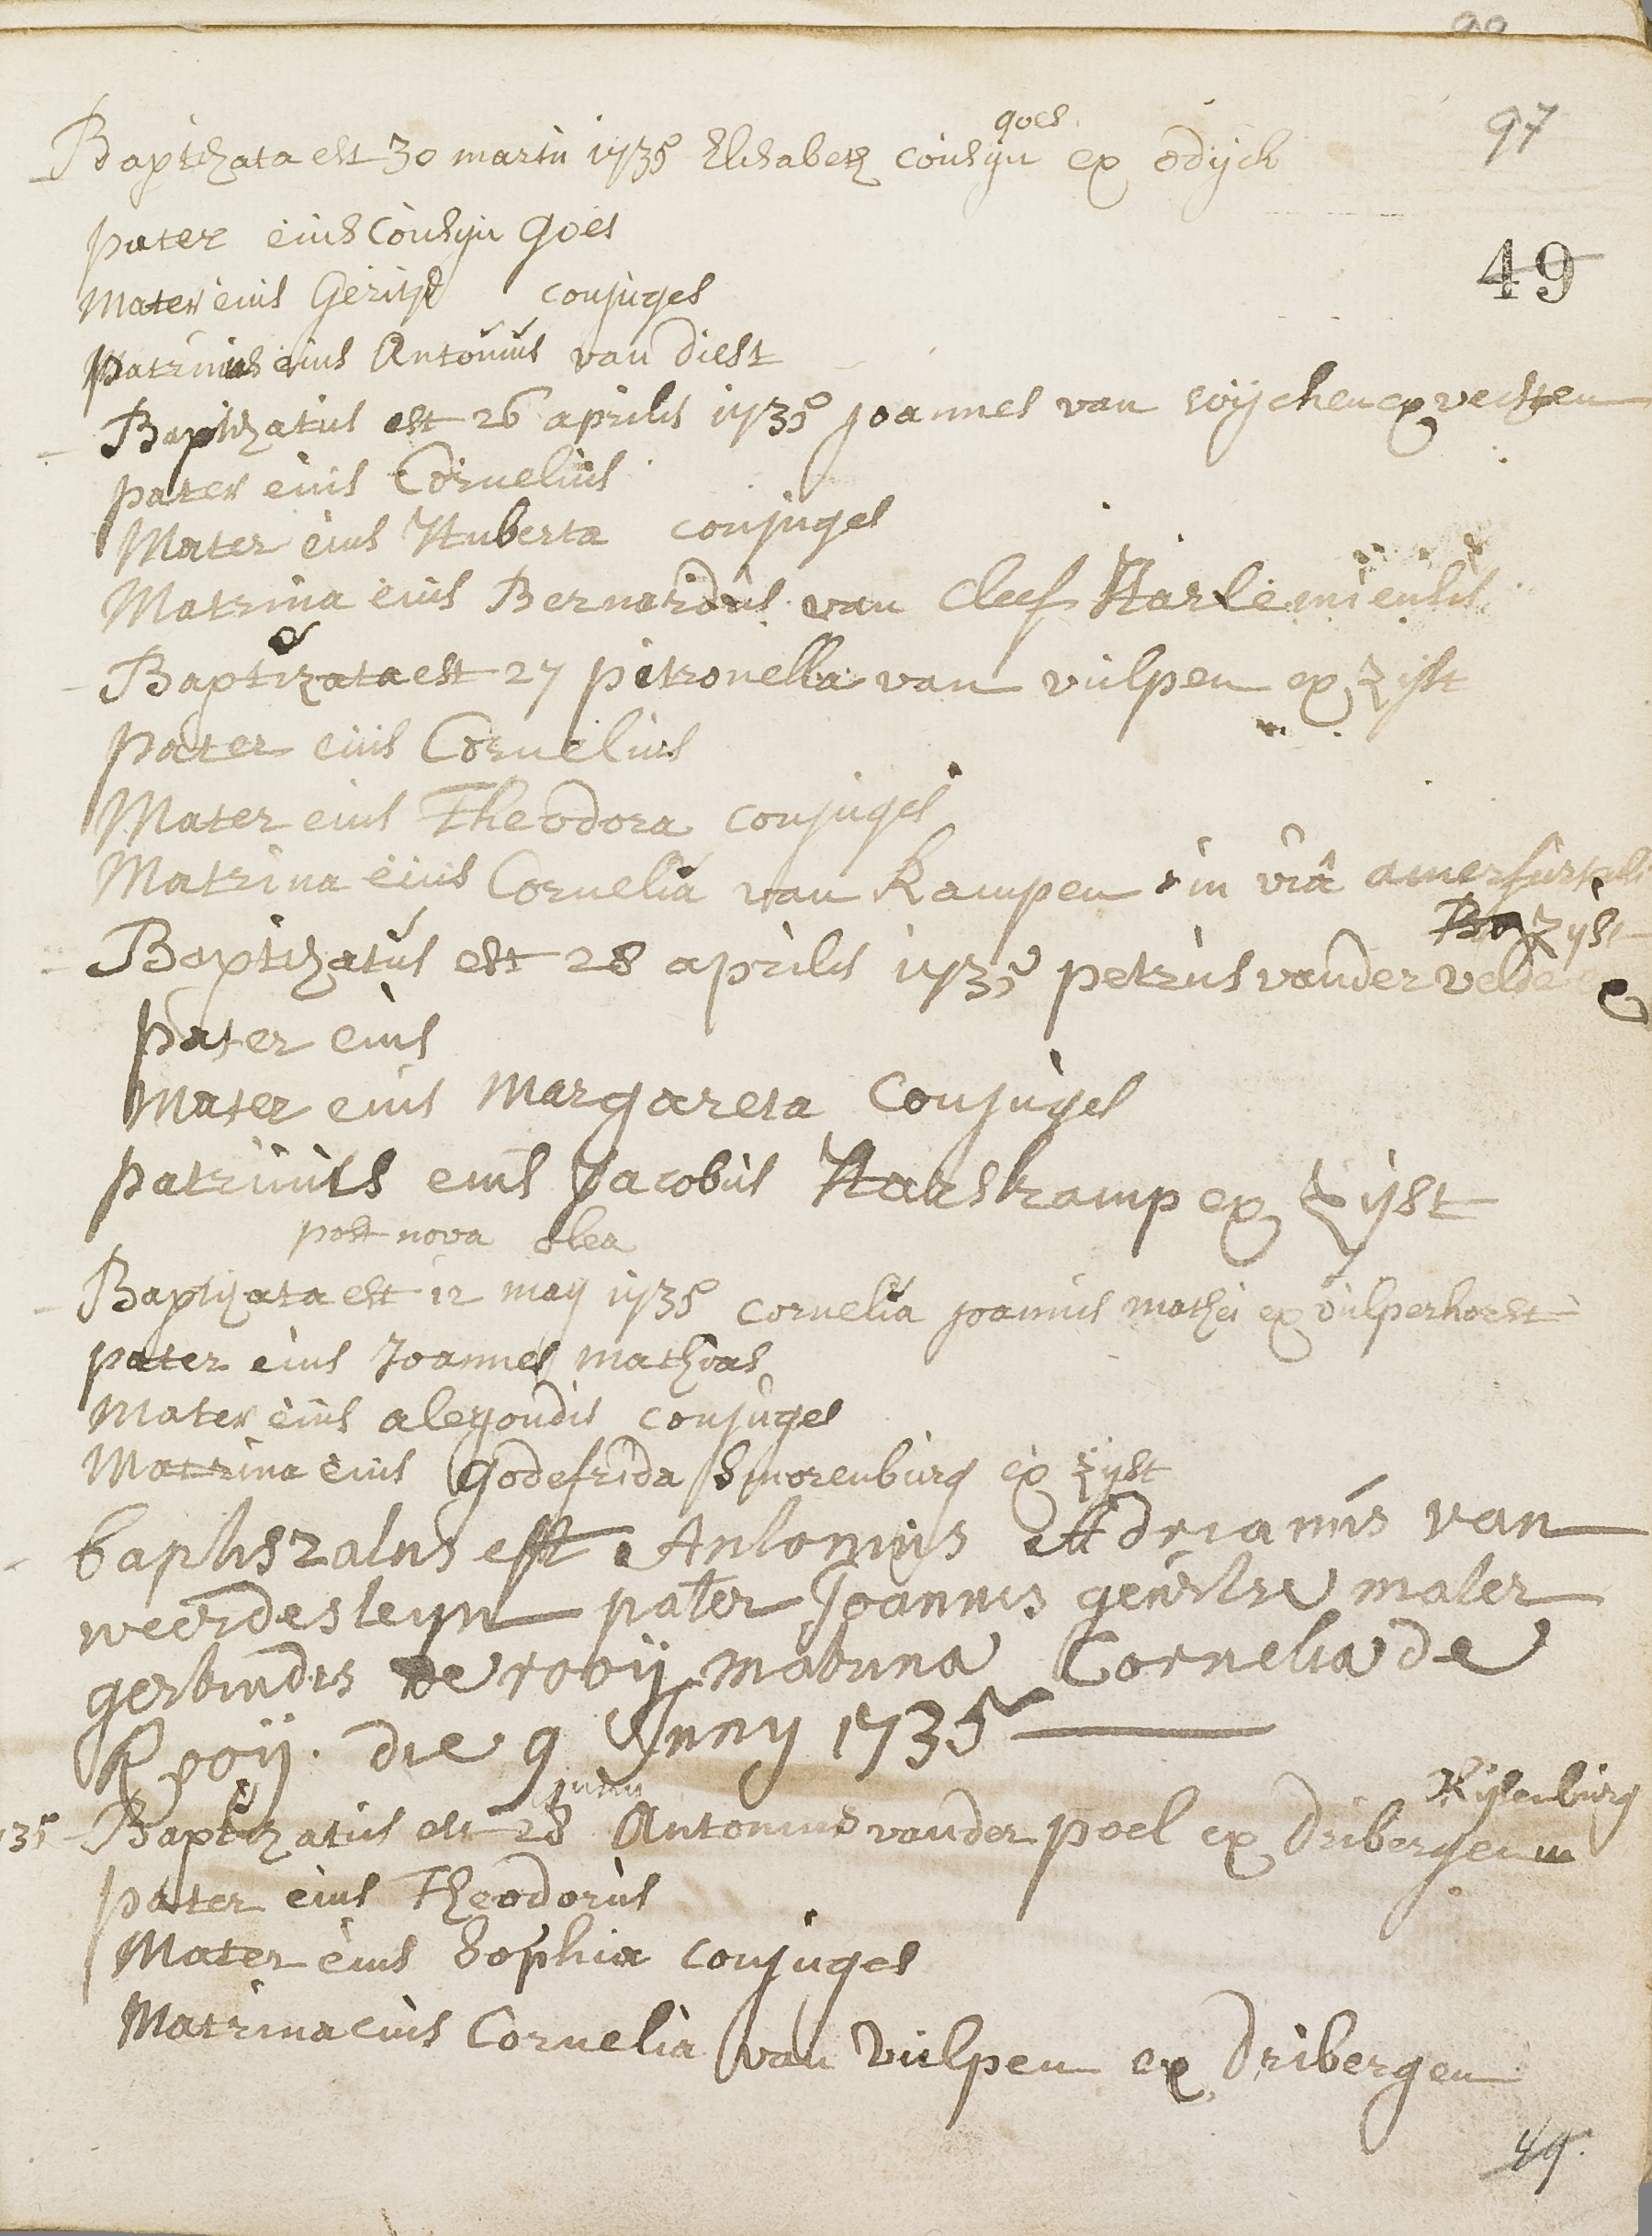 97
goes
Baptizata est 30 martii 1735 Elisabeth Cousijn ex odijck
pater eius Cousijn Goes
49
Mater eius Gerirje conjuges
patrinus eius Antonius van Diest
Baptizatus est 26 aprilis 1735 joannes van soijchen ex vechten
pater eius Cornelius
Mater eius Huberta conjuges
Matrina eius Bernardus van Cleef Harlemiensis
Baptizata est 27 petronella van vulpen ex zijst
pater eius Cornelius
Mater eius Theodora conjuges
Matrina eius Cornelia van Kampen in via amersfurt
zijst
Baptizatus est 28 aprilis 1735 petrus vander velde ex
pater eius
Mater eius Margareta Conjuges
patrinus eius Jacobus Harskamp ex zijst
post nova olea
Baptizata est 12 maij 1735 Cornelia joannis mathei ex vulperhorst
pater eius Joannes mathias
Mater eius alegondis conjuges
Matrina eius Godefrida Smorenburg ex zijst
baptiszatus est Antonius Adrianus van
weerdesteyn pater Joannis mater
gertrudis de rooij matrina Cornelia de
Rooij. die 9 Juny 1735
Rijsenburg
junii
35 Baptizatus est 28 Antonius vander poel ex Dribergen
pater eius Theodorus
Mater eius Sophia conjuges
Matrina eius Cornelia van Vulpen ex Dribergen
49.